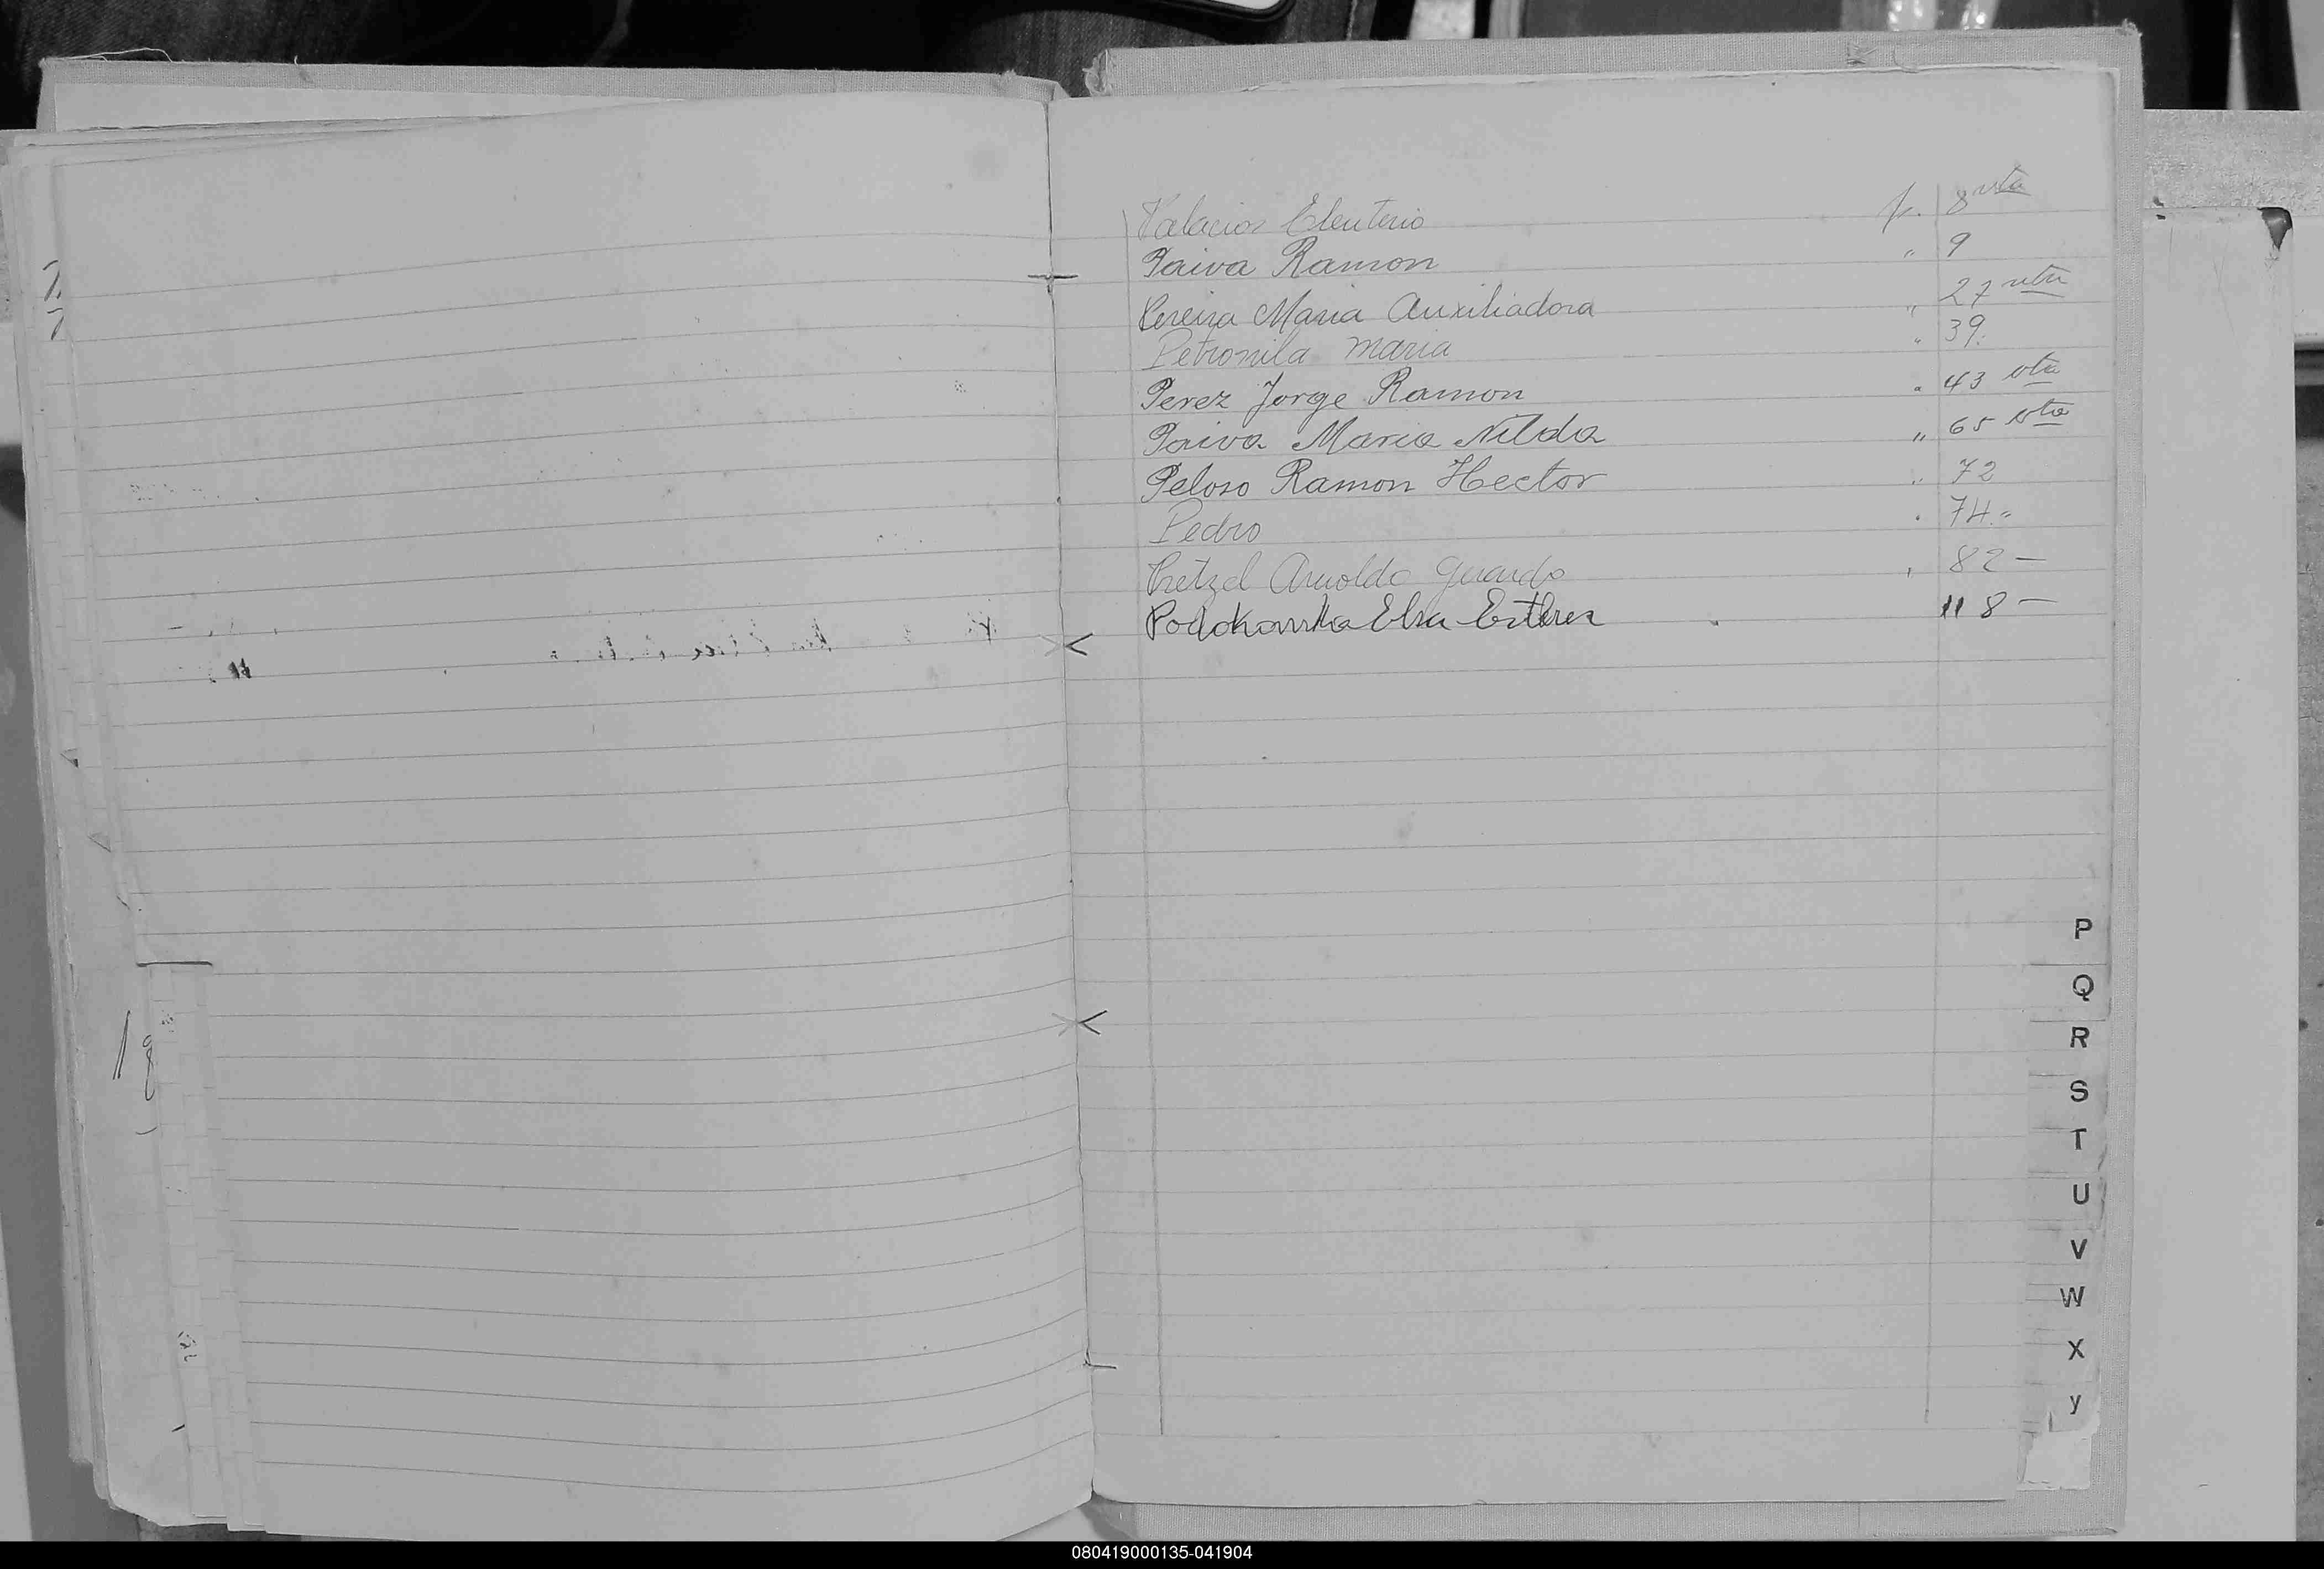 Palacios Eleuterio f. 8 vta
Paiva Ramon " 9
Pereira Maria Auxiliadora " 27 vta
Petronila Maria " 39.
Perez Jorge Ramon " 43 vta
Paiva Maria Nilda " 65 vta
Peloso Ramon Hector " 72
Pedro " 74.=
Pretzel Arnoldo Gerardo " 82 —
Elsa Esther 118 —
P
Q
R
S
T
U
V
W
X
y
080419000135-041904